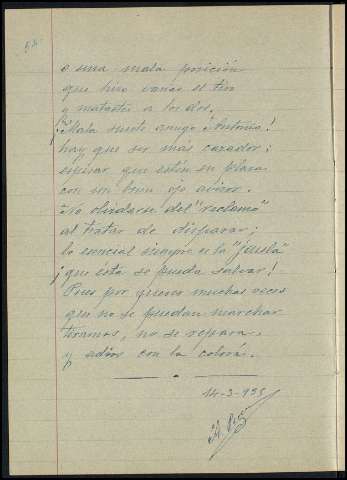 o una mala posición
que hizo variar el tiro
y mataste a los dos.
¡Mala suerte amigo Antonio!
hay que ser más cazador;
mirar que estén en plaza
con un buen ojo avizor.
No olvidarse del "reclamo"
al tratar de disparar;
lo esencial siempre es la "jaula"
¡que ésta se pueda salvar!
Pues por querer muchas veces
que no se puedan marchar
tiramos, no se repara,
y adios con la colorá.
14-3-955